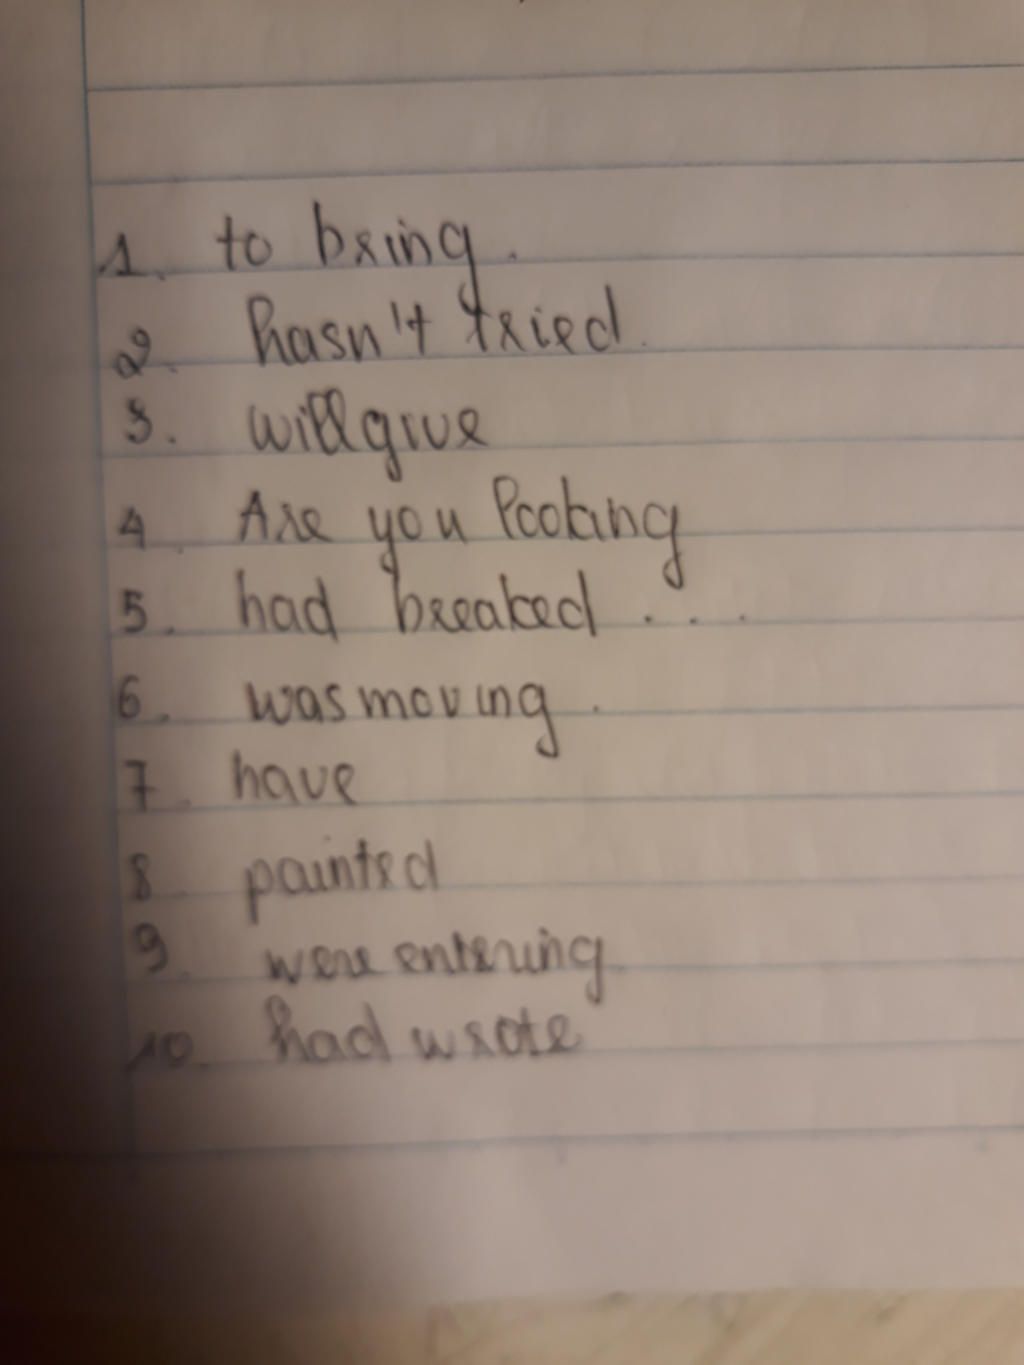 1. to bring.
2. hasn't tried.
3. will give
4. Are you looking
5. had breaked ....
6. was moving.
7. have
8. painted
9. were entering
10. had wrote